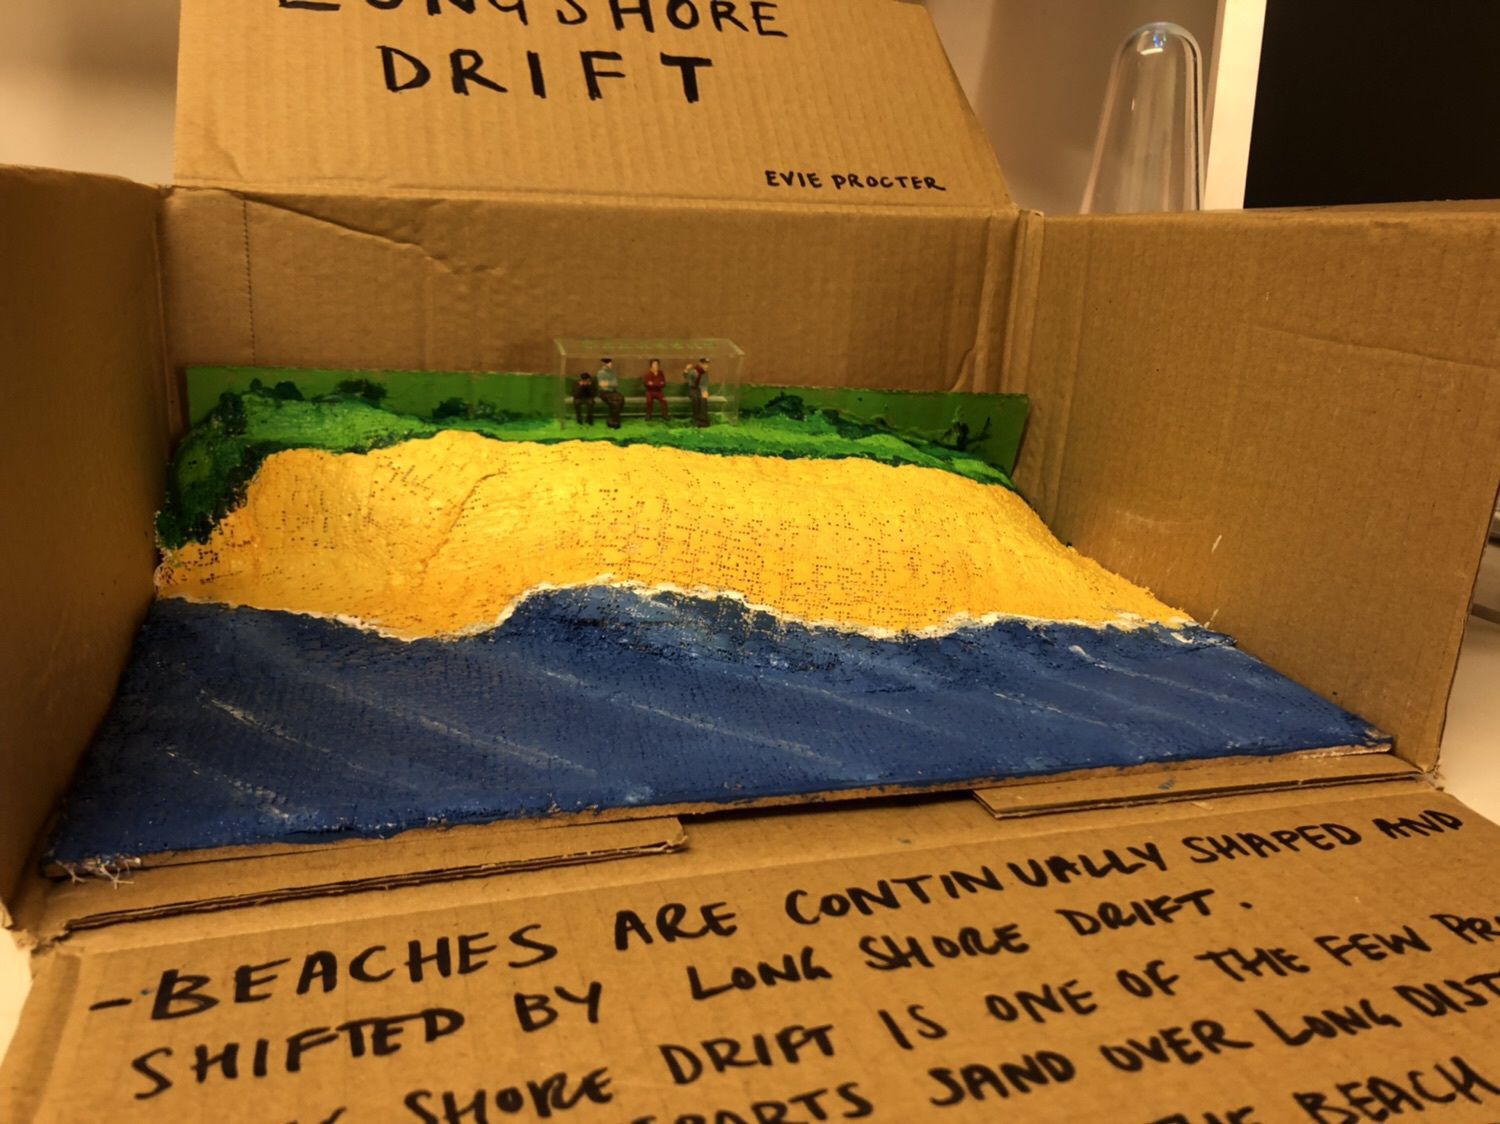 LONGSHORE
DRIFT
EVIE PROCTER
- BEACHES ARE CONTINUALLY SHAPED AND
SHIFTED BY LONG SHORE DRIFT.
SHORE DRIFT IS ONE OF THE FEW
SAND OVER LONG
THE BEACH